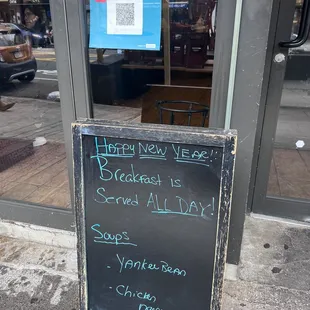 Happy New Year!!
Breakfast is
Served ALL DAY!
Soups
- Yankee Bean
- Chicken